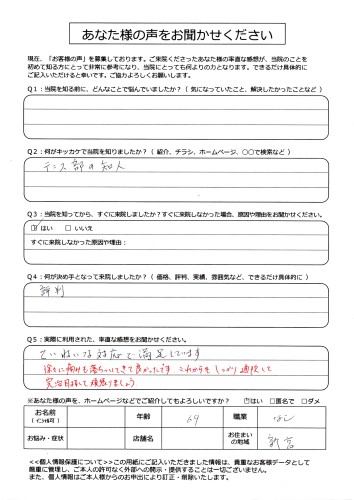 あなた様の声をお聞かせください
現在、「お客様の声」を募集しております。ご来院くださったあなた様の率直な感想が、当院のことを
初めて知る方にとって非常に参考になり、当院にとっても何よりの力となります。できるだけ具体的に
ご記入いただけると幸いです。ご協力よろしくお願いします。
Q1:当院を知る前に、どんなことで悩んでいましたか?( 気になっていたこと、解決したかったことなど )
Q2:何がキッカケで当院を知りましたか?( 紹介、チラシ、ホームページ、○○で検索など )
テニス部の知人
Q3:当院を知ってから、すぐに来院しましたか?すぐに来院しなかった場合、原因や理由をお聞かせください。
☑ はい □ いいえ
すぐに来院しなかった原因や理由:
Q4:何が決め手となって来院しましたか?( 価格、評判、実績、雰囲気など、できるだけ具体的に )
評判
Q5:実際に利用された、率直な感想をお聞かせください。
ていねいな対応で満足しています
徐々に痛みも落ちついてきて良かったです これからもしっかり通院して
完治目指して頑張りましょう
※あなた様の声を、ホームページなどでご紹介してもよろしいですか? □はい ☑匿名で □ダメ
お名前
(イニシャル可)
年齢
69
職業
なし
お悩み・症状
店舗名
お住まい
の地域
新宮
<<個人情報保護について>>この用紙にご記入いただきました情報は、貴重なお客様データとして
厳重に管理し、ご本人の許可なく外部への開示・提供することは一切ございません。
また、個人情報はご本人様からのお申出により訂正・削除いたします。